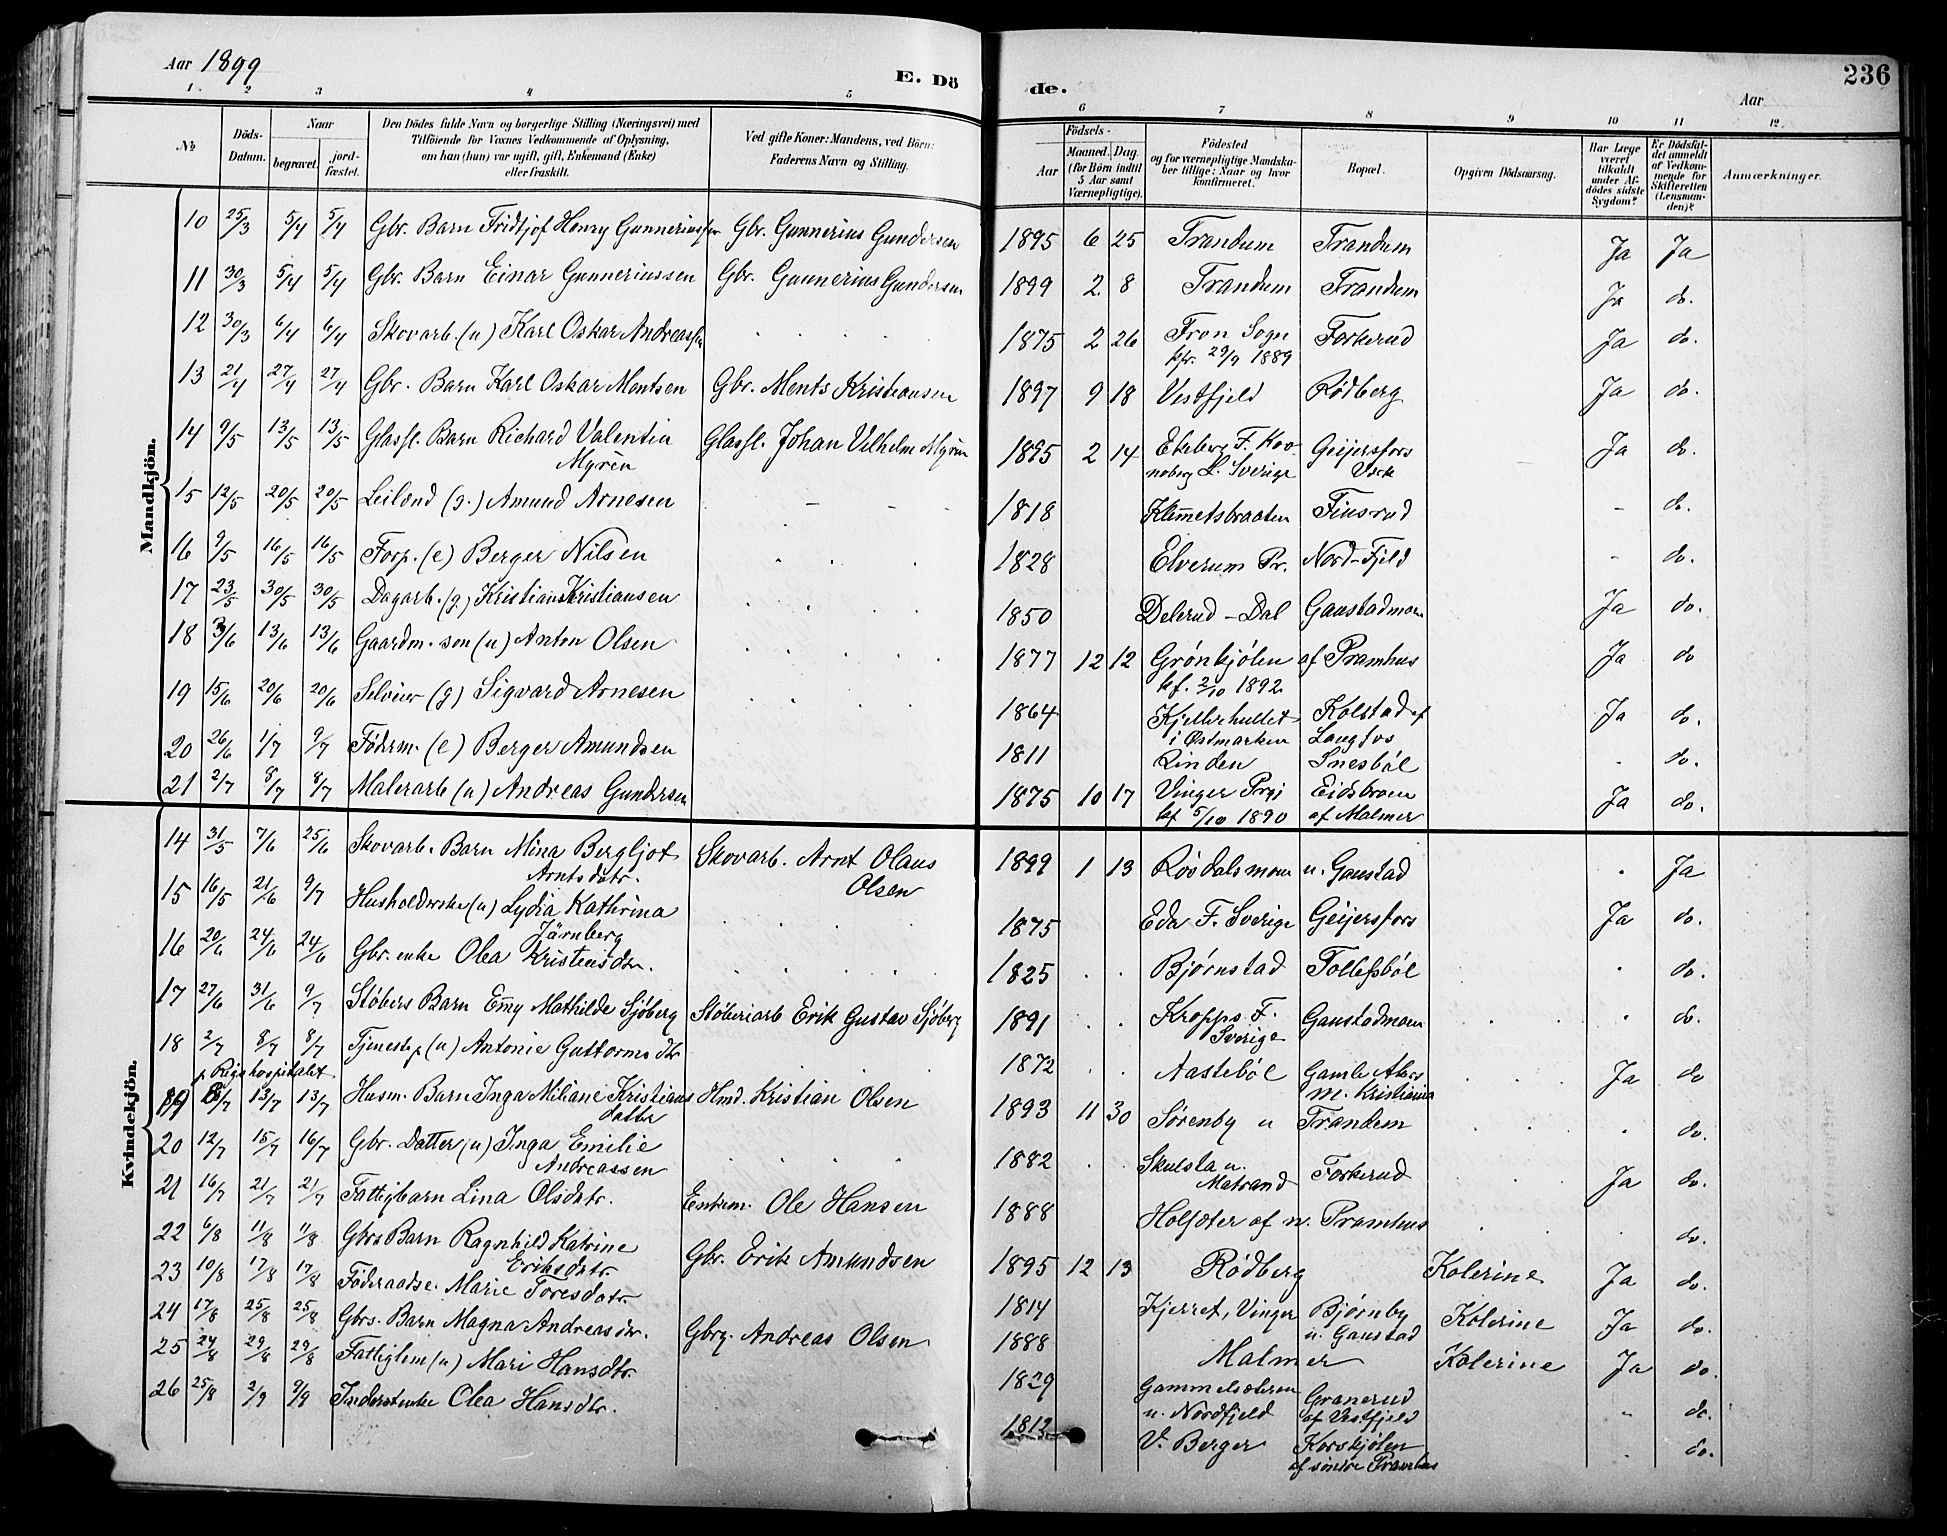 Aar 1899
E. Dö
de.
Aar
236
1 2 3 4 5 6 7 8 9 10 11 12
№
Döds-Datum.
Naar
begravet.
jordfæstet.
Den Dödes fulde Navn og borgerlige Stilling (Næringsvei) med
Tilföiende for Voxnes Vedkommende af Oplysning,
om han (hun) var ugift, gift, Enkemand (Enke)
eller fraskilt.
Ved gifte Koner: Mandens, ved Börn:
Faderens Navn og Stilling.
Födsels-
Aar
Maaned. Dag.
(for Börn indtil
5 Aar samt
Værnepligtige).
Födested
og for værnepligtige Mandskaber tillige: Naar og hvor
konfirmeret.
Bopæl.
Opgiven Dödsaarsag.
Har Læge
været
tilkaldt
under Afdödes sidste
Sygdom?
Er Dödsfaldet anmeldt
af Vedkommende for
Skifteretten
(Lensmanden)?
Anmærkninger.
Mandkjön.
10 25/3 5/4 5/4 Gbr. Barn Fridtjof Henry Gunneriussen Gbr. Gunnerius Gundersen 1895 6 25 Trandum Trandum Ja Ja
11 30/3 5/4 5/4 Gbr. Barn Einar Gunneriussen Gbr. Gunnerius Gundersen 1899 2 8 Trandum Trandum Ja do.
12 30/3 6/4 6/4 Skovarb. (u) Karl Oskar Andreassen 1875 2 26 Fron Sogn Forkerud Ja do.
kfr. 29/9 1889
13 21/4 27/4 27/4 Gbr. Barn Karl Oskar Mentsen Gbr. Ments Kristiansen 1897 9 18 Vestfjeld Rødberg Ja do.
14 9/5 13/5 13/5 Glassl. Barn Richard Valentin Glassl. Johan Vilhelm Myrén 1895 2 14 Ekeberg F. Kro- Geijersfors Ja do.
Myrén noberg L. Sverige Værk
15 12/5 20/5 20/5 Leilænd (g.) Amund Arnesen 1818 Klemetsbraaten Finsrud - do.
16 9/5 16/5 16/5 Forp. (e) Berger Nilsen 1828 Elverum Pr. Nord-Fjeld do.
17 23/5 30/5 30/5 Dagarb. (g.) Kristian Kristiansen 1850 Delerud - Dal Gaustadmoen Ja do.
18 3/6 13/6 13/6 Gaardm. søn (u) Anton Olsen 1877 12 12 Grønkjølen af Pramhus Ja do
kf. 2/10 1892
19 15/6 20/6 20/6 Selveier (g) Sigvard Arnesen 1864 Kjellerhullet Kolstad af Ja do.
i Østmarken Langfos
20 26/6 1/7 9/7 Føderm. (e) Berger Amundsen 1811 Linden Snesbøl do.
21 2/7 8/7 8/7 Malerarb (u) Andreas Gundersen 1875 10 17 Vinger Prgj Eidsbroen Ja do.
kf 5/10 1890 af Malmer
Kvindekjön.
14 31/5 7/6 25/6 Skovarb. Barn Mina Bergljot Skovarb. Arnt Olaus 1899 1 13 Røsdalsmoen u. Gaustad Ja
Arntsdatr. Olsen
15 16/5 21/6 9/7 Husholderske (u) Lydia Kathrina 1875 Eda F. Sverige Geijersfors Ja do.
Järnberg
16 20/6 24/6 24/6 Gbr. enke Olea Kristensdtr. 1825 Bjørnstad Tollefsbøl do.
17 27/6 31/6 9/7 Støbers Barn Emy Mathilde Sjöberg Støberiarb Erik Gustav Sjöberg 1891 Kropps F. Gaustadmoen do.
Sverige
18 2/7 8/7 8/7 Tjenestep (u) Antonie Guttormsdtr 1872 Aastebøl Gamle Akers Ja do
p. Rigshospitalet m. Kristiania
19 8/7 13/7 13/7 Husm. Barn Inga Miliane Kristians Hmd. Kristian Olsen 1893 11 30 Sørenby u Trandem do.
datter
20 12/7 15/7 16/7 Gbr. Datter (u) Inga Emilie 1882 Skulsta u. Forkerud Ja do.
Andreassen Matrand
21 16/7 21/7 21/7 Fattigbarn Lina Olsdatr. Enkem. Ole Hansen 1888 Holsæter af n. Pramhus do.
22 6/8 11/8 11/8 Gbrs Barn Ragnhild Katrine Gbr. Erik Amundsen 1895 12 13 Rødberg Kolerine Ja do.
Eriksdatr.
23 10/8 17/8 17/8 Føderaadse. Marie Toresdatr. 1814 Kjerret, Vinger Bjørnby Kolerine Ja do.
u. Gaustad
24 17/8 25/8 25/8 Gbrs. Barn Magna Andreasdtr. Gbrg. Andreas Olsen 1888 Malmer Kolerine Ja do.
25 24/8 29/8 29/8 Fattiglem (u) Mari Hansdtr. 1829 Gammelsæteren Granerud do.
u. Nordfjeld af Vestfjeld
26 25/8 2/9 9/9 Inderstenke Olea Hansdtr. 1812 V. Berger Korskjølen do.
af søndre Pramhus